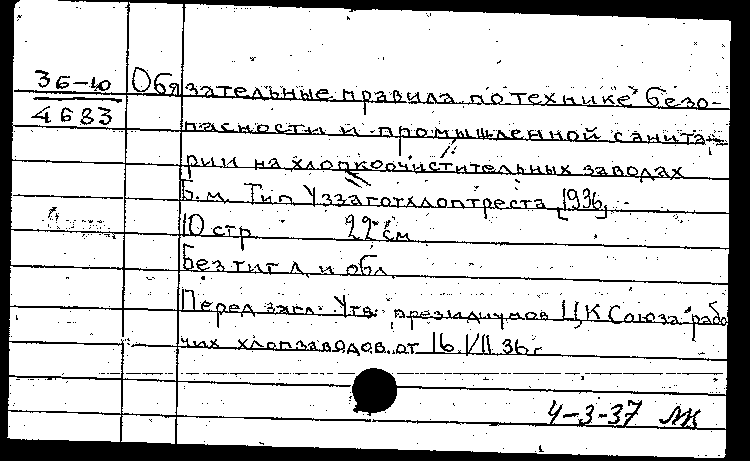 36-10 Обязательные правила по технике безо-
4683 пасности и промышленной санита-
рии на хлопкоочистительных заводах
Б.м. Тип Уззаготхлоптреста [1936]
10 стр 22 см
Без тит л. и обл.
Перед загл: Утв. президиумов ЦК Союза рабо
чих хлопзаводов от 16/VII 36 г
4-3-37 ЛК